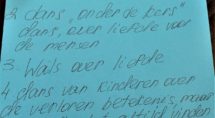 2 dans "onder de kers"
dans, over liefde voor
de mensen
3. Wals over liefde
4 dans van kinderen over
de verloren betekenis, maar
altijd vinden